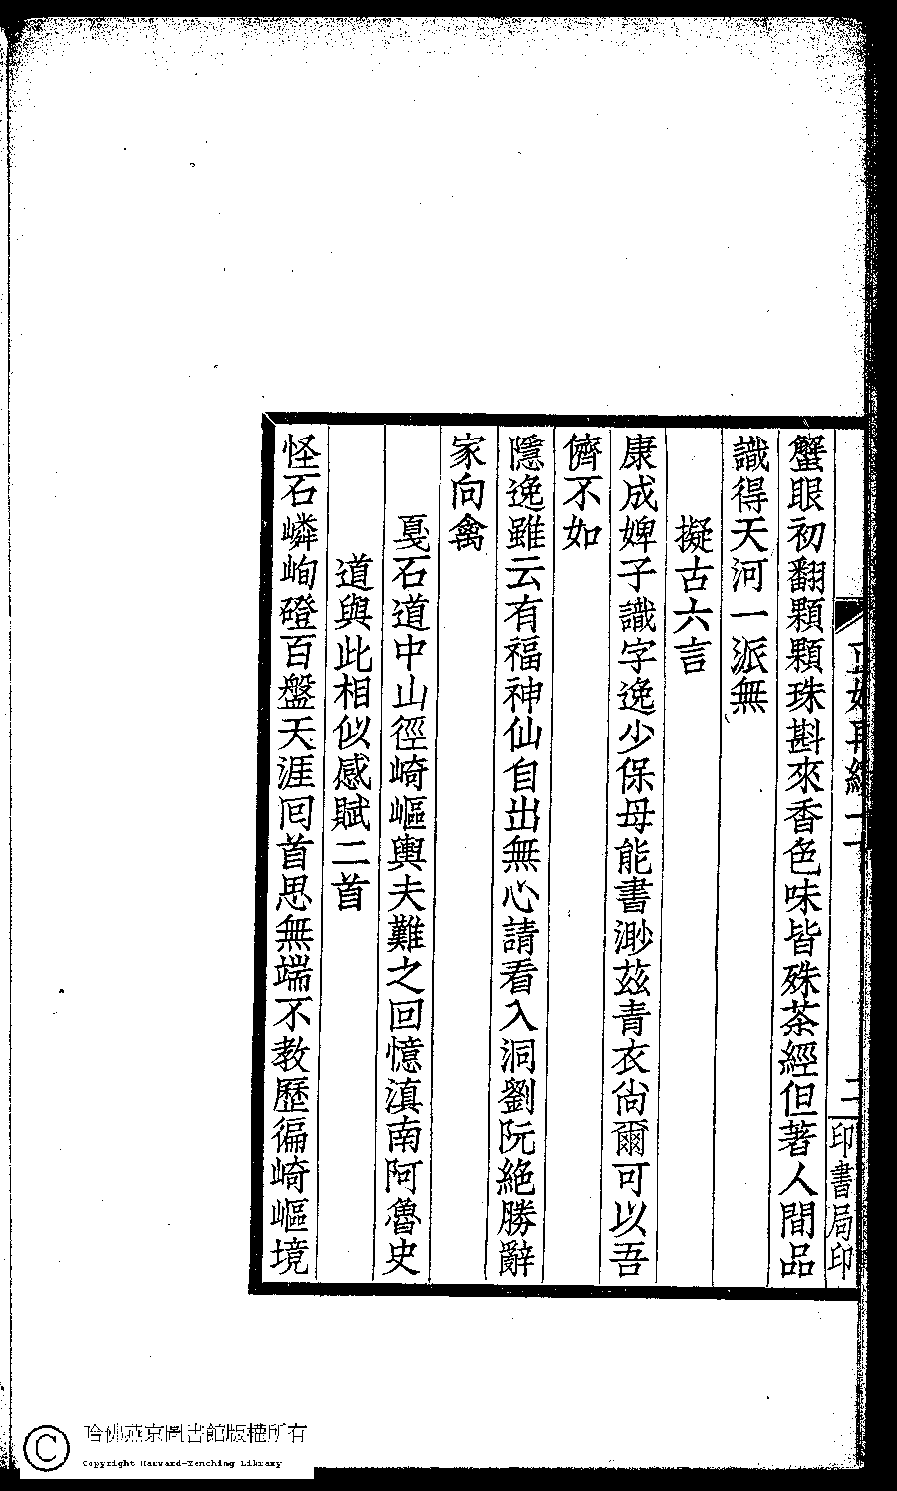 蟹眼初翻顆顆珠斟來香色味皆殊茶經但著人間品
識得天河一派無
擬古六言
康成婢子識字逸少保母能書渺茲青衣尙爾可以吾
儕不如
隱逸雖云有福神仙自出無心請看入洞劉阮絶勝辭
家向禽
戛石道中山徑崎嶇輿夫難之回憶滇南阿魯史
道與此相似感賦二首
怪石嶙峋磴百盤天涯囘首思無端不教歷徧崎嶇境
二
印書局印
哈佛燕京圖書館版權所有
Copyright Harvard-Yenching Library